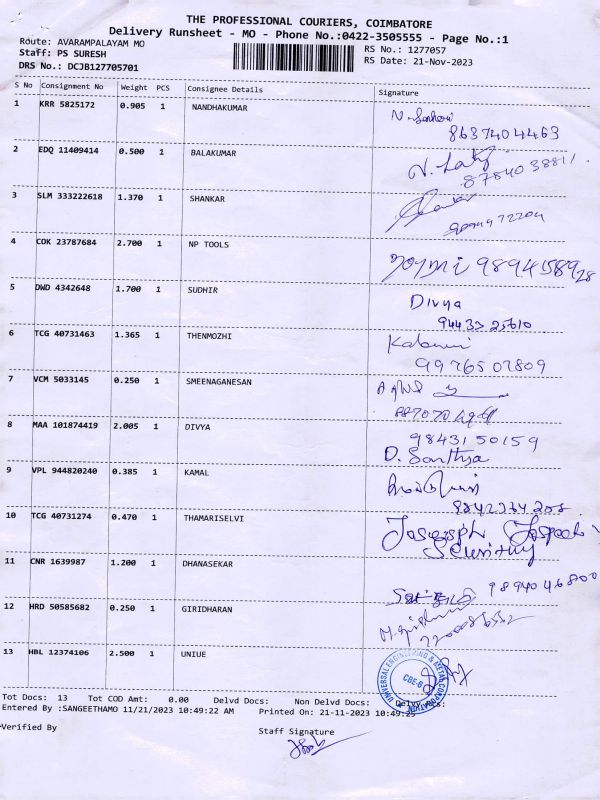 THE PROFESSIONAL COURIERS, COIMBATORE
Delivery Runsheet - MO - Phone No.:0422-3505555 - Page No.:1
Route: AVARAMPALAYAM MO
Staff: PS SURESH
DRS No.: DCJB127705701
RS No.: 1277057
RS Date: 21-Nov-2023
S No Consignment No Weight PCS Consignee Details Signature
1 KRR 5825172 0.905 1 NANDHAKUMAR
8637404463
2 EDQ 11409414 0.500 1 BALAKUMAR
8784038811
3 SLM 333222618 1.370 1 SHANKAR
4 COK 23787684 2.700 1 NP TOOLS
9894158928
5 DWD 4342648 1.700 1 SUDHIR
Divya
94433 25610
6 TCG 40731463 1.365 1 THENMOZHI
9976507809
7 VCM 5033145 0.250 1 SMEENAGANESAN
8 MAA 101874419 2.005 1 DIVYA
9843150159
D. Santhya
9 VPL 944820240 0.385 1 KAMAL
10 TCG 40731274 0.470 1 THAMARISELVI
11 CNR 1639987 1.200 1 DHANASEKAR
9894046800
12 HRD 50585682 0.250 1 GIRIDHARAN
13 HBL 12374106 2.500 1 UNIUE
UNIVERSAL ENGINEERING & METAL CORPORATION
CBE-6
Tot Docs: 13 Tot COD Amt: 0.00 Delvd Docs: Non Delvd Docs: Delvy Docs:
Entered By :SANGEETHAMO 11/21/2023 10:49:22 AM Printed On: 21-11-2023 10:49:25
Verified By
Staff Signature